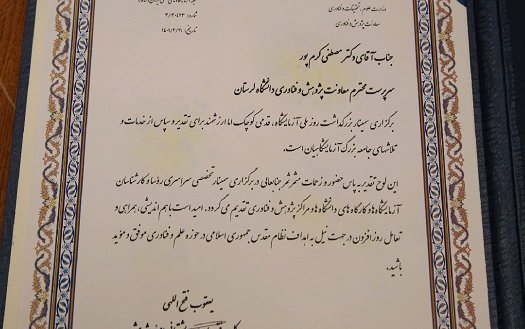 وزارت علوم، تحقیقات و فناوری
معاونت پژوهش و فناوری
شماره: ۳/۳۰۴۲۳
تاریخ: ۱۴۰۱/۲/۲۱
جناب آقای دکتر مصطفی کرم پور
سرپرست محترم معاونت پژوهش و فناوری دانشگاه لرستان
برگزاری سمینار بزرگداشت روز ملی آزمایشگاه، قدمی کوچک اما ارزشمند برای تقدیر و سپاس از خدمات و
تلاشهای جامعه بزرگ آزمایشگاهیان است.
این لوح تقدیر به پاس حضور و زحمات ثمربخش جنابعالی در برگزاری سمینار تخصصی سراسری رؤسا و کارشناسان
آزمایشگاه‌ها و کارگاه‌های دانشگاه‌ها و مراکز پژوهش و فناوری تقدیم می گردد. امید است با هم اندیشی، همراهی و
تعامل روزافزون در جهت نیل به اهداف نظام مقدس جمهوری اسلامی در حوزه علم و فناوری موفق و مؤید
باشید.
یعقوب فتح اللهی